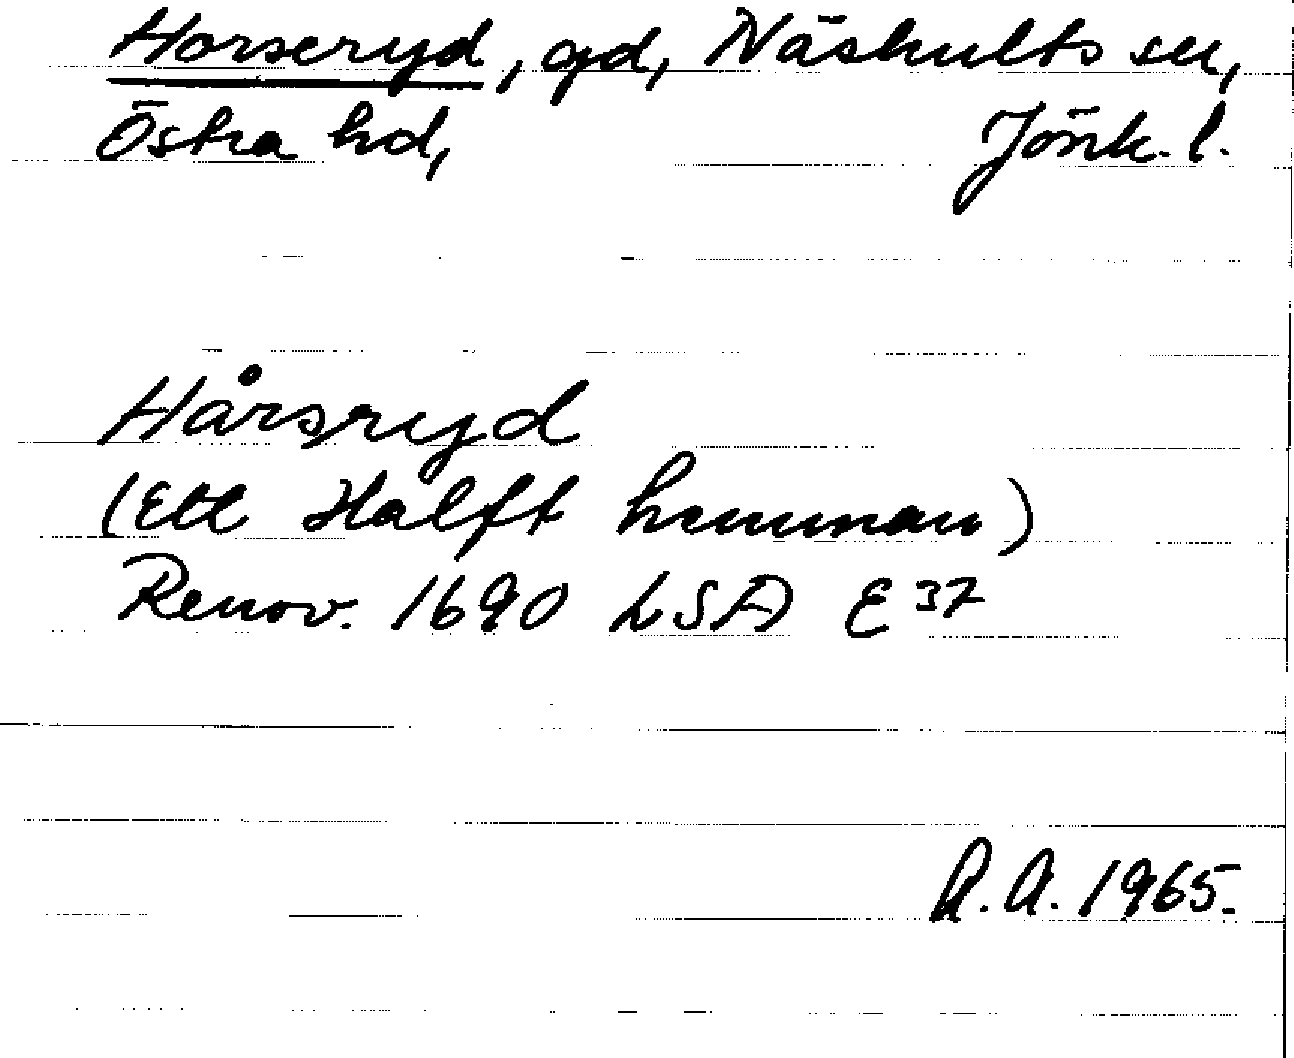 Horseryd, gd, Näshults sn,
Östra hd, Jönk. l.
Hårsryd
(Ett Halft hemman)
Renov. 1690 LSA E 37
R.A. 1965.